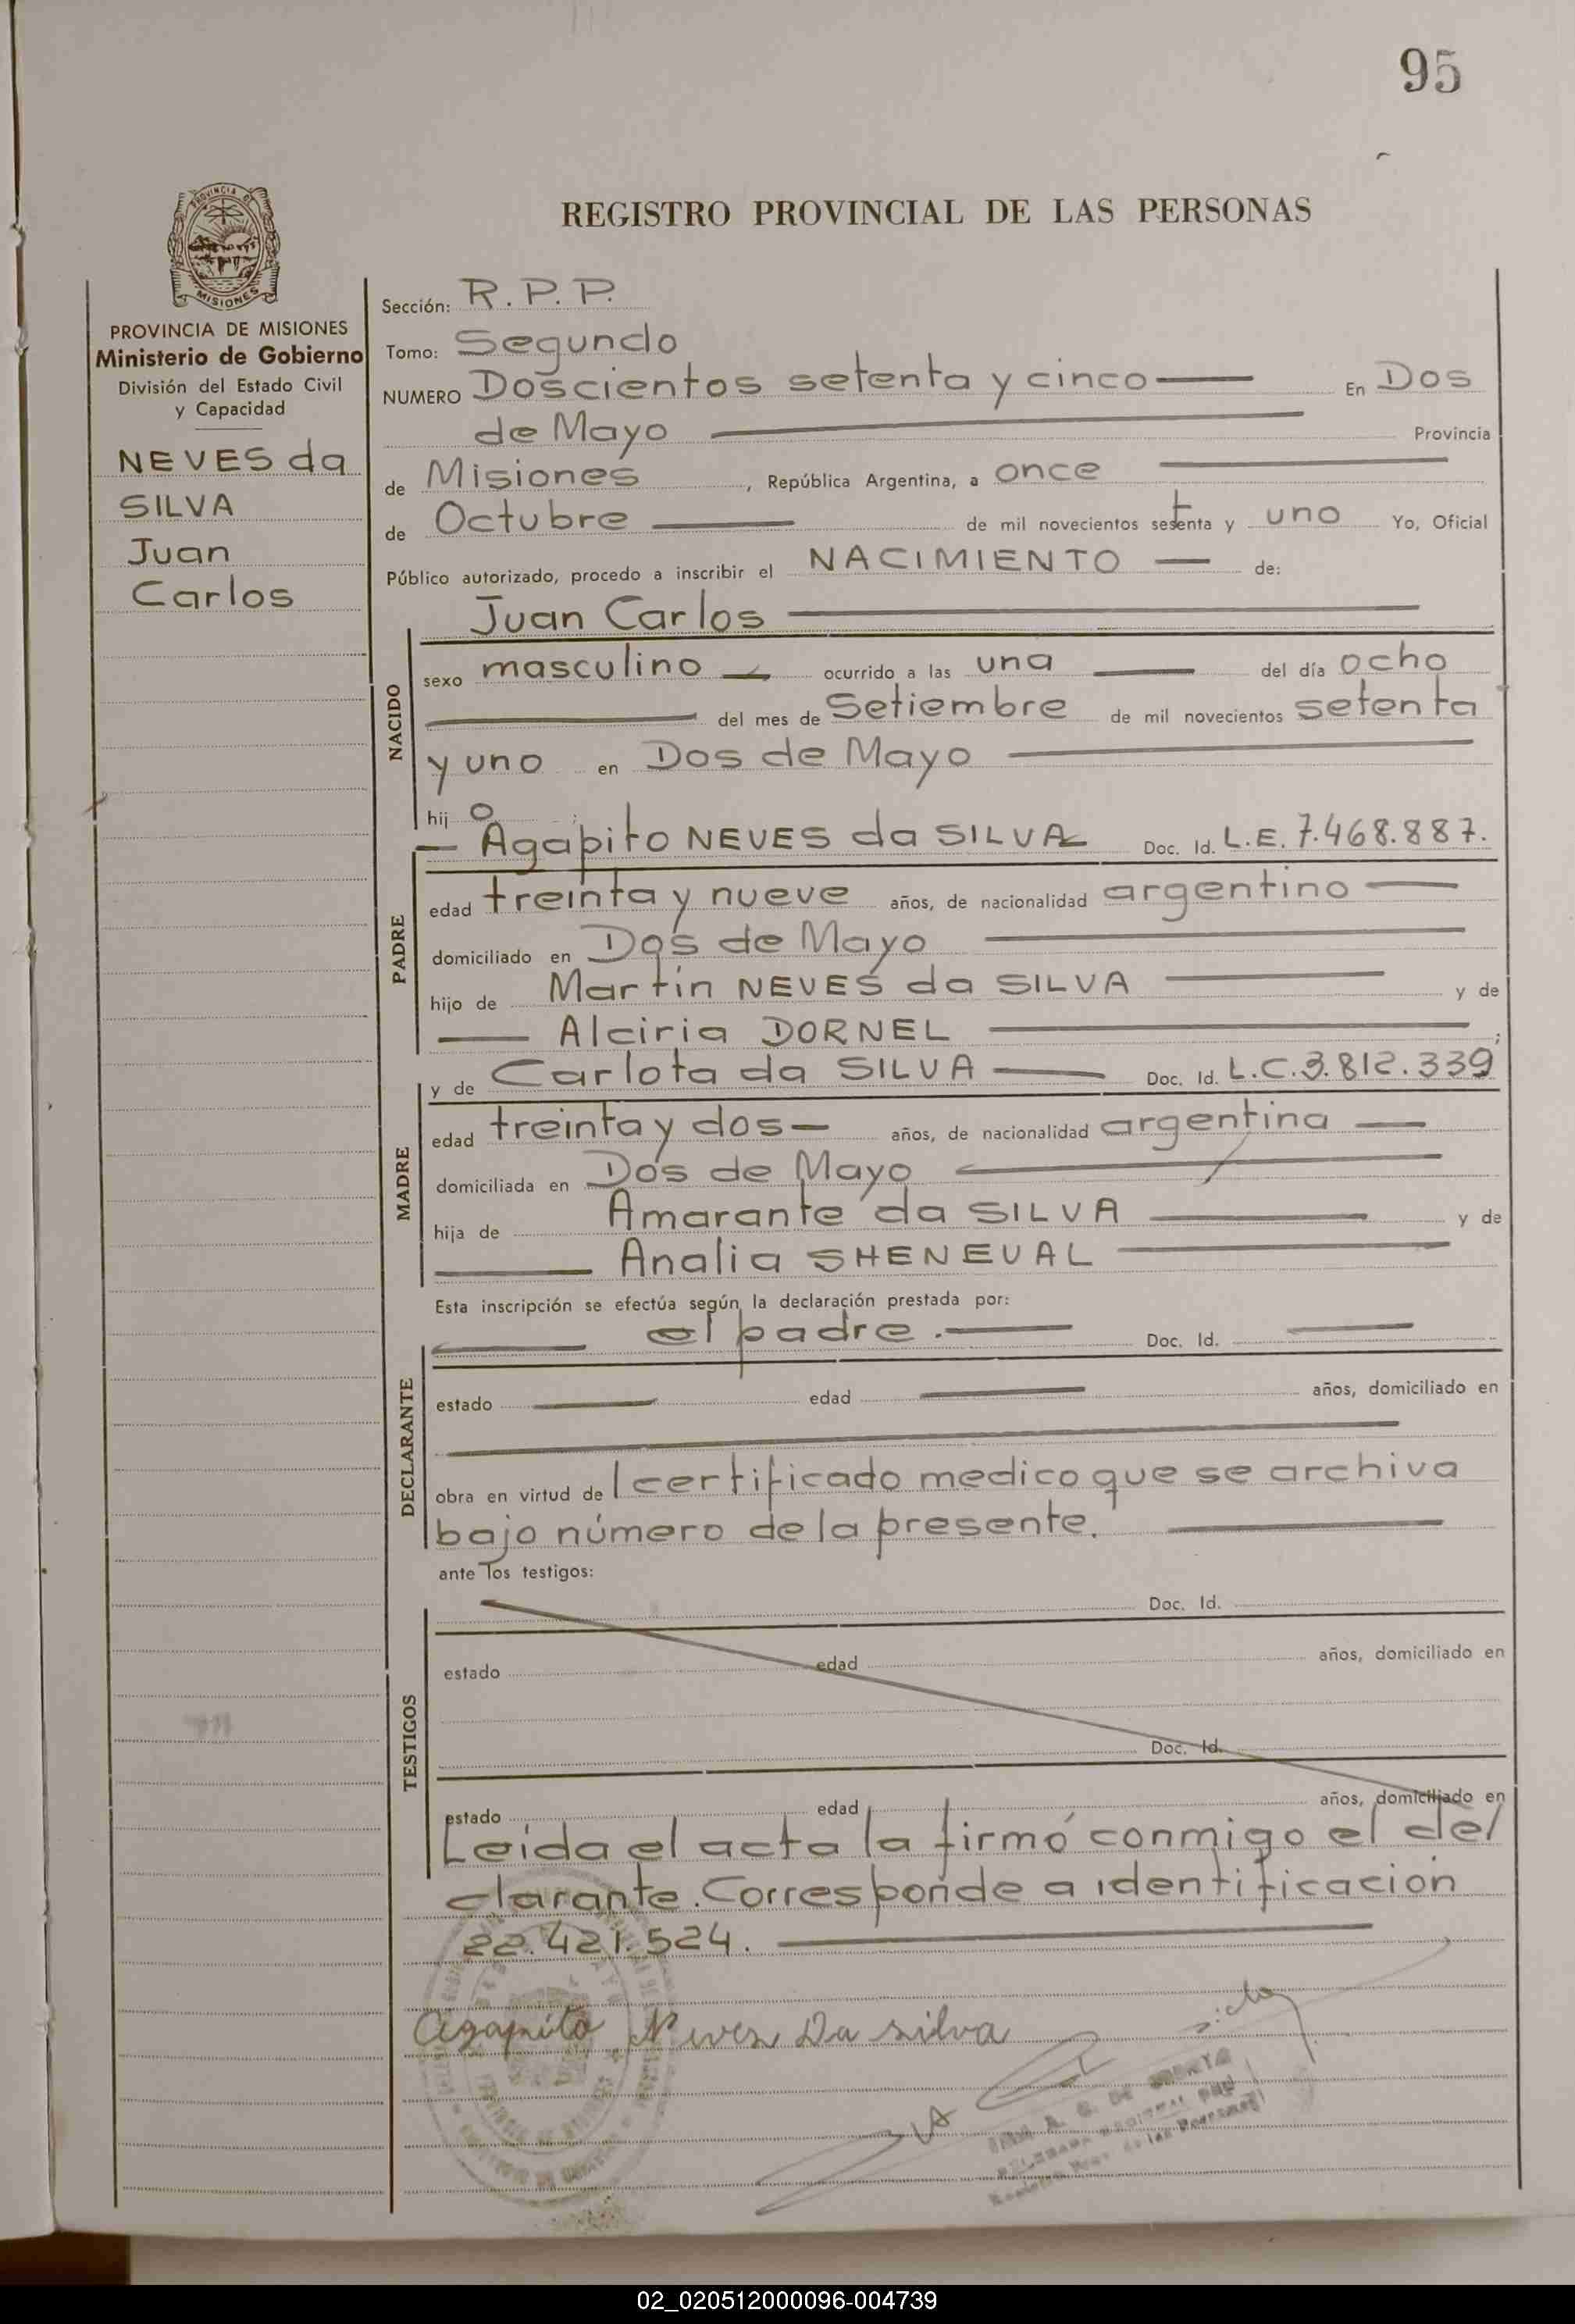 95
PROVINCIA DE MISIONES
REGISTRO PROVINCIAL DE LAS PERSONAS
PROVINCIA DE MISIONES
Ministerio de Gobierno
División del Estado Civil
y Capacidad
NEVES da
SILVA
Juan
Carlos
Sección: R.P.P.
Tomo: Segundo
NUMERO Doscientos setenta y cinco En Dos
de Mayo Provincia
de Misiones, República Argentina, a once
de Octubre de mil novecientos setenta y uno Yo, Oficial
Público autorizado, procedo a inscribir el NACIMIENTO de:
Juan Carlos
NACIDO
sexo masculino ocurrido a las una del día ocho
del mes de Setiembre de mil novecientos setenta
y uno en Dos de Mayo
hijo
Agapito NEVES da SILVA Doc. Id. L.E. 7.468.887.
PADRE
edad treinta y nueve años, de nacionalidad argentino
domiciliado en Dos de Mayo
hijo de Martín NEVES da SILVA y de
Alciria DORNEL
y de Carlota da SILVA Doc. Id. L.C.3.812.339
MADRE
edad treinta y dos años, de nacionalidad argentina
domiciliada en Dos de Mayo
hija de Amarante da SILVA y de
Analia SHENEVAL
Esta inscripción se efectúa según la declaración prestada por:
el padre. Doc. Id.
DECLARANTE
estado edad años, domiciliado en
obra en virtud del certificado medico que se archiva
bajo número de la presente.
ante los testigos:
Doc. Id.
TESTIGOS
estado edad años, domiciliado en
Doc. Id.
estado edad años, domiciliado en
Leida el acta la firmó conmigo el de/
clarante. Corresponde a identificacion
22.421.524.
Agapito Neves Da silva
02_020512000096-004739